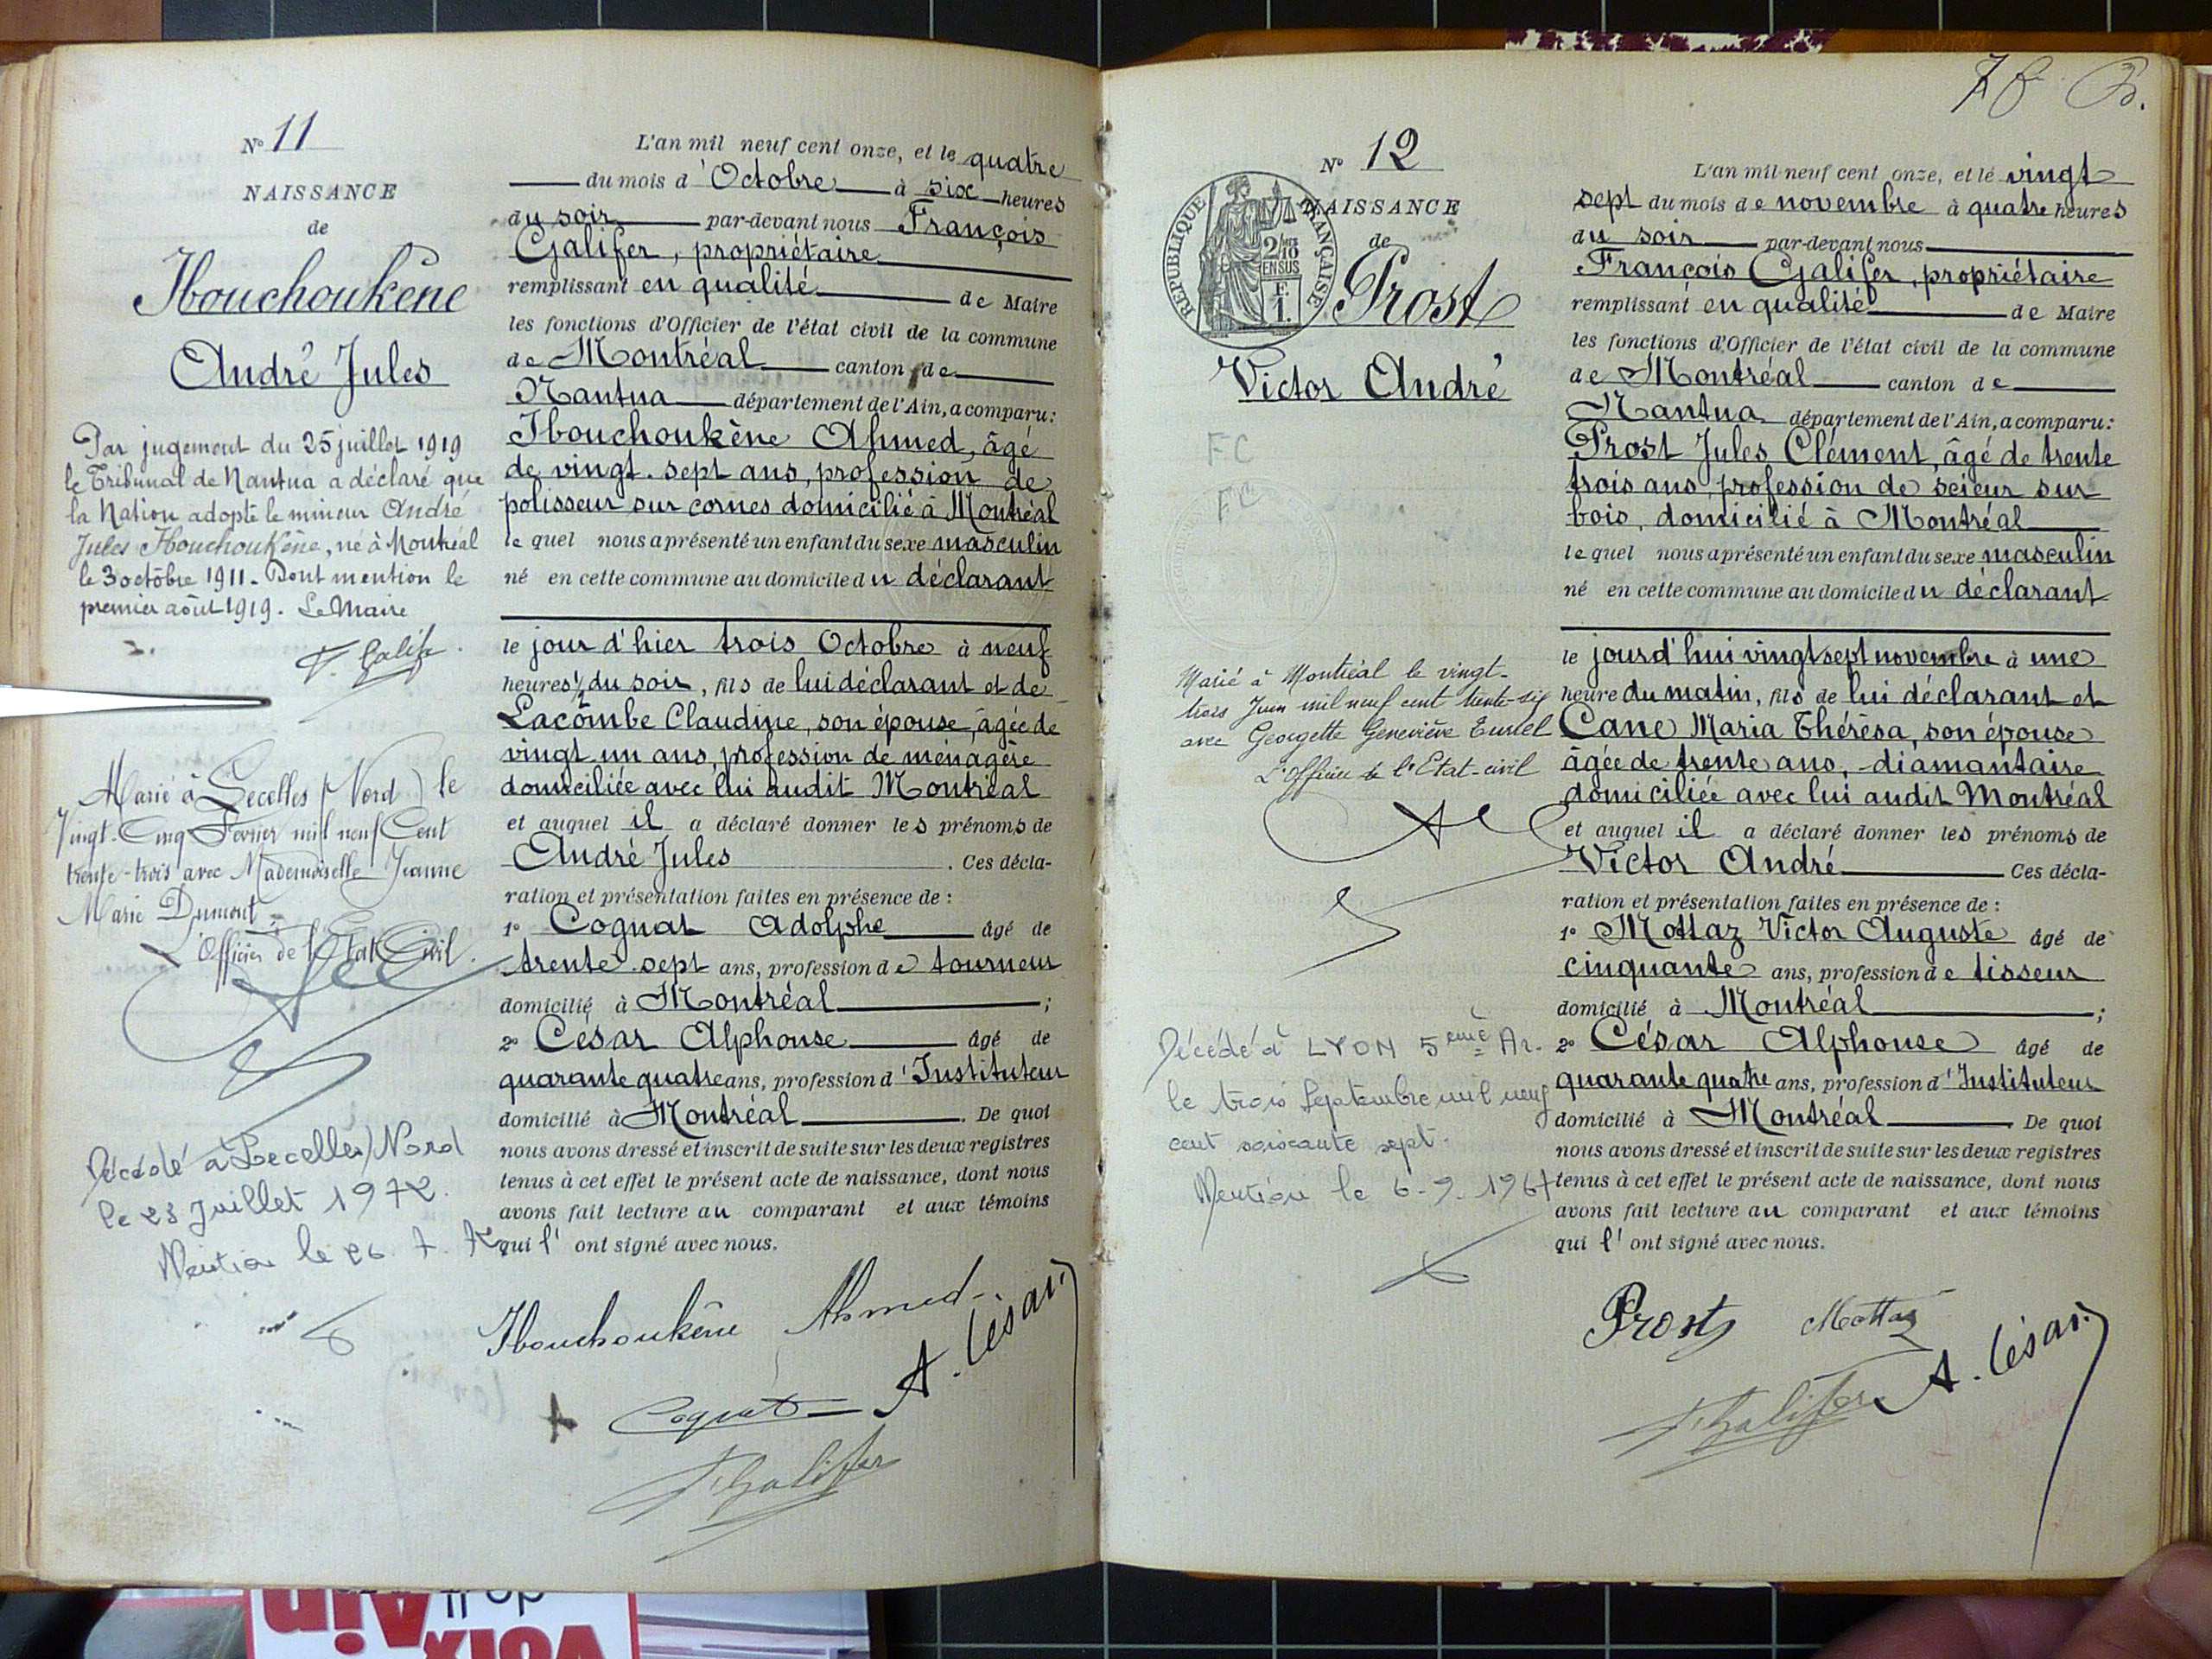 N° 11
NAISSANCE
de
Ibouchoukène
André Jules
Par jugement du 25 juillet 1919
le Tribunal de Nantua a déclaré que
la Nation adopte le mineur André
Jules Ibouchoukène, né à Montréal
le 3 octobre 1911. Dont mention le
premier août 1919. Le Maire
F. Galifer
Marié à Lecelles (Nord) le
Vingt-Cinq Février mil neuf Cent
trente-trois avec Mademoiselle Jeanne
Marie Dumont
L'Officier de l'Etat Civil.
Décédé à Lecelles/Nord
le 23 Juillet 1972.
Mention le 26.7.72
L'an mil neuf cent onze, et le quatre
du mois d'Octobre à six heures
du soir par-devant nous François
Galifer, propriétaire
remplissant en qualité de Maire
les fonctions d'Officier de l'état civil de la commune
de Montréal canton de
Nantua département de l'Ain, a comparu:
Ibouchoukène Ahmed, âgé
de vingt-sept ans, profession de
polisseur sur cornes domicilié à Montréal
lequel nous a présenté un enfant du sexe masculin
né en cette commune au domicile du déclarant
le jour d'hier trois Octobre à neuf
heures ½ du soir, fils de lui déclarant et de
Lacombe Claudine, son épouse, âgée de
vingt un ans, profession de ménagère
domiciliée avec lui audit Montréal
et auquel il a déclaré donner les prénoms de
André Jules. Ces décla-
ration et présentation faites en présence de :
1° Cognat Adolphe âgé de
trente-sept ans, profession de tourneur
domicilié à Montréal ;
2° César Alphonse âgé de
quarante quatre ans, profession d'Instituteur
domicilié à Montréal. De quoi
nous avons dressé et inscrit de suite sur les deux registres
tenus à cet effet le présent acte de naissance, dont nous
avons fait lecture au comparant et aux témoins
qui l'ont signé avec nous.
Ibouchoukène Ahmed
Cognat A. César
F. Galifer
N° 12
NAISSANCE
de
REPUBLIQUE FRANÇAISE
2/10 EN SUS
F. 1.
Prost
Victor André
FC
FC
Marié à Montréal le vingt-
trois Juin mil neuf cent trente-six
avec Georgette Geneviève
L'Officier de l'Etat-civil
Décédé à LYON 5ème Ar.
le trois Septembre mil neuf
cent soixante sept.
Mention le 6-9-1967
L'an mil neuf cent onze, et le vingt
sept du mois de novembre à quatre heures
du soir par-devant nous
François Galifer, propriétaire
remplissant en qualité de Maire
les fonctions d'Officier de l'état civil de la commune
de Montréal canton de
Nantua département de l'Ain, a comparu:
Prost Jules Clément, âgé de trente
trois ans, profession de scieur sur
bois, domicilié à Montréal
lequel nous a présenté un enfant du sexe masculin
né en cette commune au domicile du déclarant
le jourd'hui vingt sept novembre à une
heure du matin, fils de lui déclarant et
Cane Maria Thérésa, son épouse
âgée de trente ans, diamantaire
domiciliée avec lui audit Montréal
et auquel il a déclaré donner les prénoms de
Victor André Ces décla-
ration et présentation faites en présence de :
1° Mottaz Victor Auguste âgé de
cinquante ans, profession de tisseur
domicilié à Montréal ;
2° César Alphonse âgé de
quarante quatre ans, profession d'Instituteur
domicilié à Montréal. De quoi
nous avons dressé et inscrit de suite sur les deux registres
tenus à cet effet le présent acte de naissance, dont nous
avons fait lecture au comparant et aux témoins
qui l'ont signé avec nous.
Prost Mottaz
F. Galifer A. César
VOIX
de l'AIN